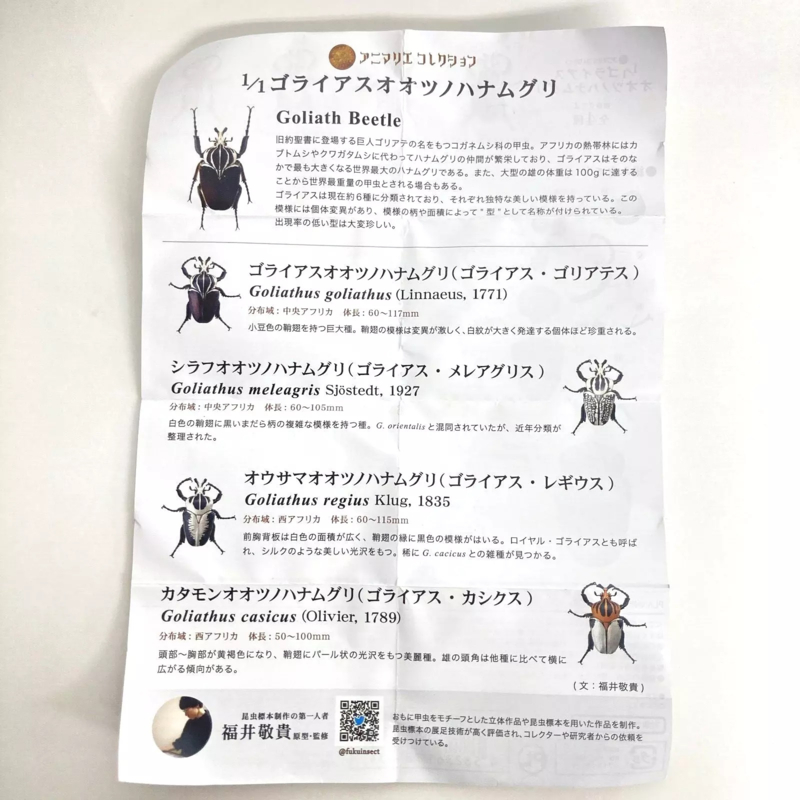 アニマリエ コレクション
1/1ゴライアスオオツノハナムグリ
Goliath Beetle
旧約聖書に登場する巨人ゴリアテの名をもつコガネムシ科の甲虫。アフリカの熱帯林にはカ
ブトムシやクワガタムシに代わってハナムグリの仲間が繁栄しており、ゴライアスはそのな
かで最も大きくなる世界最大のハナムグリである。また、大型の雄の体重は100gに達する
ことから世界最重量の甲虫とされる場合もある。
ゴライアスは現在約6種に分類されており、それぞれ独特な美しい模様を持っている。この
模様には個体変異があり、模様の柄や面積によって"型"として名称が付けられている。
出現率の低い型は大変珍しい。
ゴライアスオオツノハナムグリ(ゴライアス・ゴリアテス)
Goliathus goliathus (Linnaeus, 1771)
分布域:中央アフリカ 体長:60〜117mm
小豆色の鞘翅を持つ巨大種。鞘翅の模様は変異が激しく、白紋が大きく発達する個体ほど珍重される。
シラフオオツノハナムグリ(ゴライアス・メレアグリス)
Goliathus meleagris Sjöstedt, 1927
分布域:中央アフリカ 体長:60〜105mm
白色の鞘翅に黒いまだら柄の複雑な模様を持つ種。G. orientalisと混同されていたが、近年分類が
整理された。
オウサマオオツノハナムグリ(ゴライアス・レギウス)
Goliathus regius Klug, 1835
分布域:西アフリカ 体長:60〜115mm
前胸背板は白色の面積が広く、鞘翅の縁に黒色の模様がはいる。ロイヤル・ゴライアスとも呼ば
れ、シルクのような美しい光沢をもつ。稀にG. cacicusとの雑種が見つかる。
カタモンオオツノハナムグリ(ゴライアス・カシクス)
Goliathus casicus (Olivier, 1789)
分布域:西アフリカ 体長:50〜100mm
頭部〜胸部が黄褐色になり、鞘翅にパール状の光沢をもつ美麗種。雄の頭角は他種に比べて横に
広がる傾向がある。
(文:福井敬貴)
昆虫標本制作の第一人者
福井敬貴 原型・監修
@fukuinsect
おもに甲虫をモチーフとした立体作品や昆虫標本を用いた作品を制作。
昆虫標本の展足技術が高く評価され、コレクターや研究者からの依頼を
受けつけている。